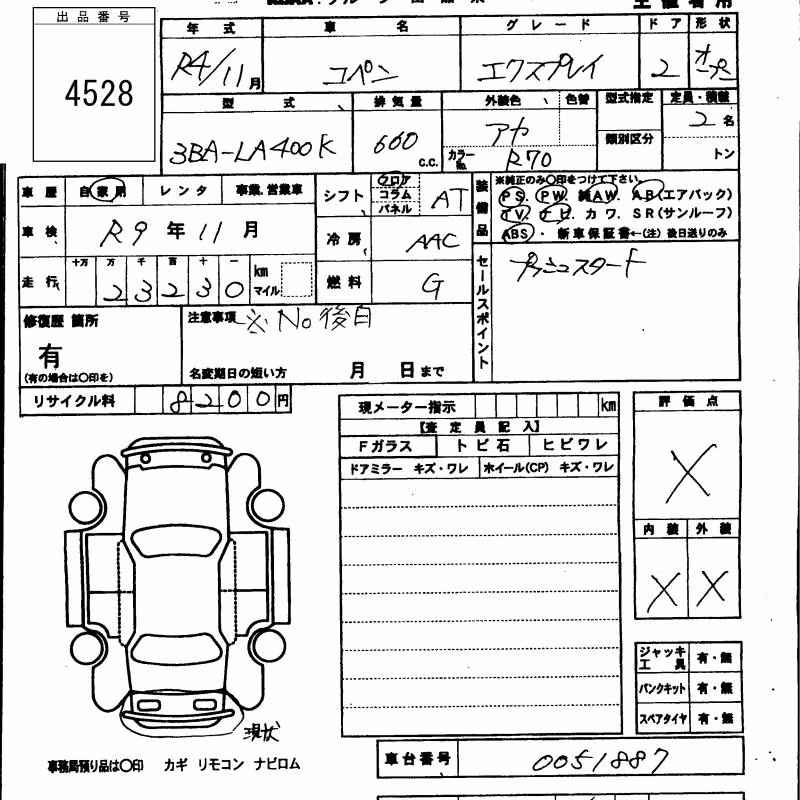 出品番号
4528
年式 車名 グレード ドア 形状
R4/11月 コペン エクスプレイ 2 オープン
型式 排気量 外装色 色替 型式指定 定員・積載
3BA-LA400K 660 c.c. アカ カラーNo. R70 類別区分 2名
トン
車歴 自家用 レンタ 事業、営業車 シフト フロア コラム パネル AT
車検 R9年11月 冷房 AAC
走行 十万 万 千 百 十 一 km マイル 燃料 G
23230
装備品 ※純正のみ○印をつけて下さい。
PS. PW. 純AW. AB(エアバック)
TV. ナビ. カワ. SR(サンルーフ)
ABS・ 新車保証書←(注) 後日送りのみ
セールスポイント プッシュスタート
修復歴 箇所 注意事項 ※No後日
有
(有の場合は○印を) 名変期日の短い方 月 日まで
リサイクル料 8200円
現メーター指示 km
【査定員記入】
Fガラス トビ石 ヒビワレ
ドアミラー キズ・ワレ ホイール(CP) キズ・ワレ
評価点
X
内装 外装
X X
ジャッキ工具 有・無
パンクキット 有・無
スペアタイヤ 有・無
現状
事務局預り品は○印 カギ リモコン ナビロム
車台番号 0051887